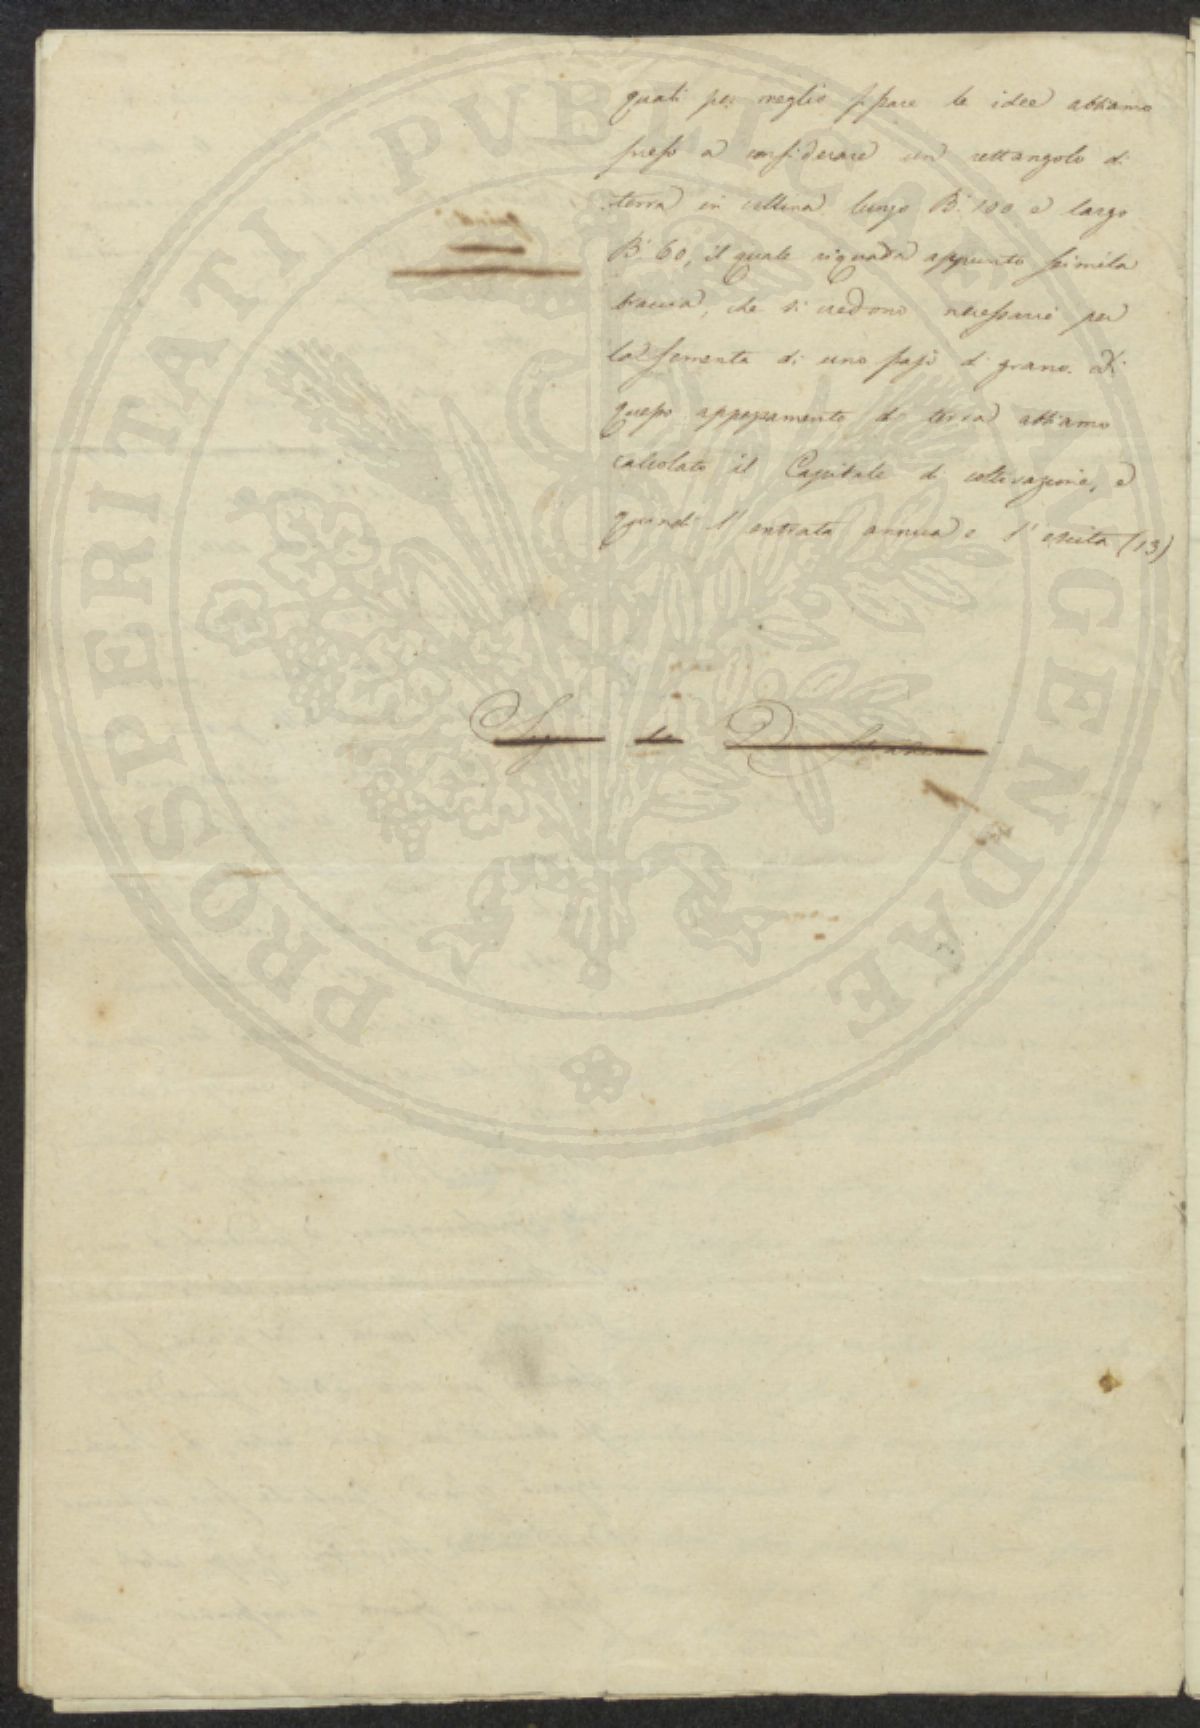 quali per meglio fissare le idee abbiamo
preso a considerare un rettangolo di
terra in collina lungo B. 100 e largo
B. 60, il quale riquadra appunto seimila
braccia, che si credono necessarie per
la sementa di uno stajo di grano. Di
questo appezzamento di terra abbiamo
calcolato il Capitale di coltivazione, e
quindi l'entrata annua e l'escita (13)
Segue la Dimostrazione
PROSPERITATI PUBLICAE AUGENDAE